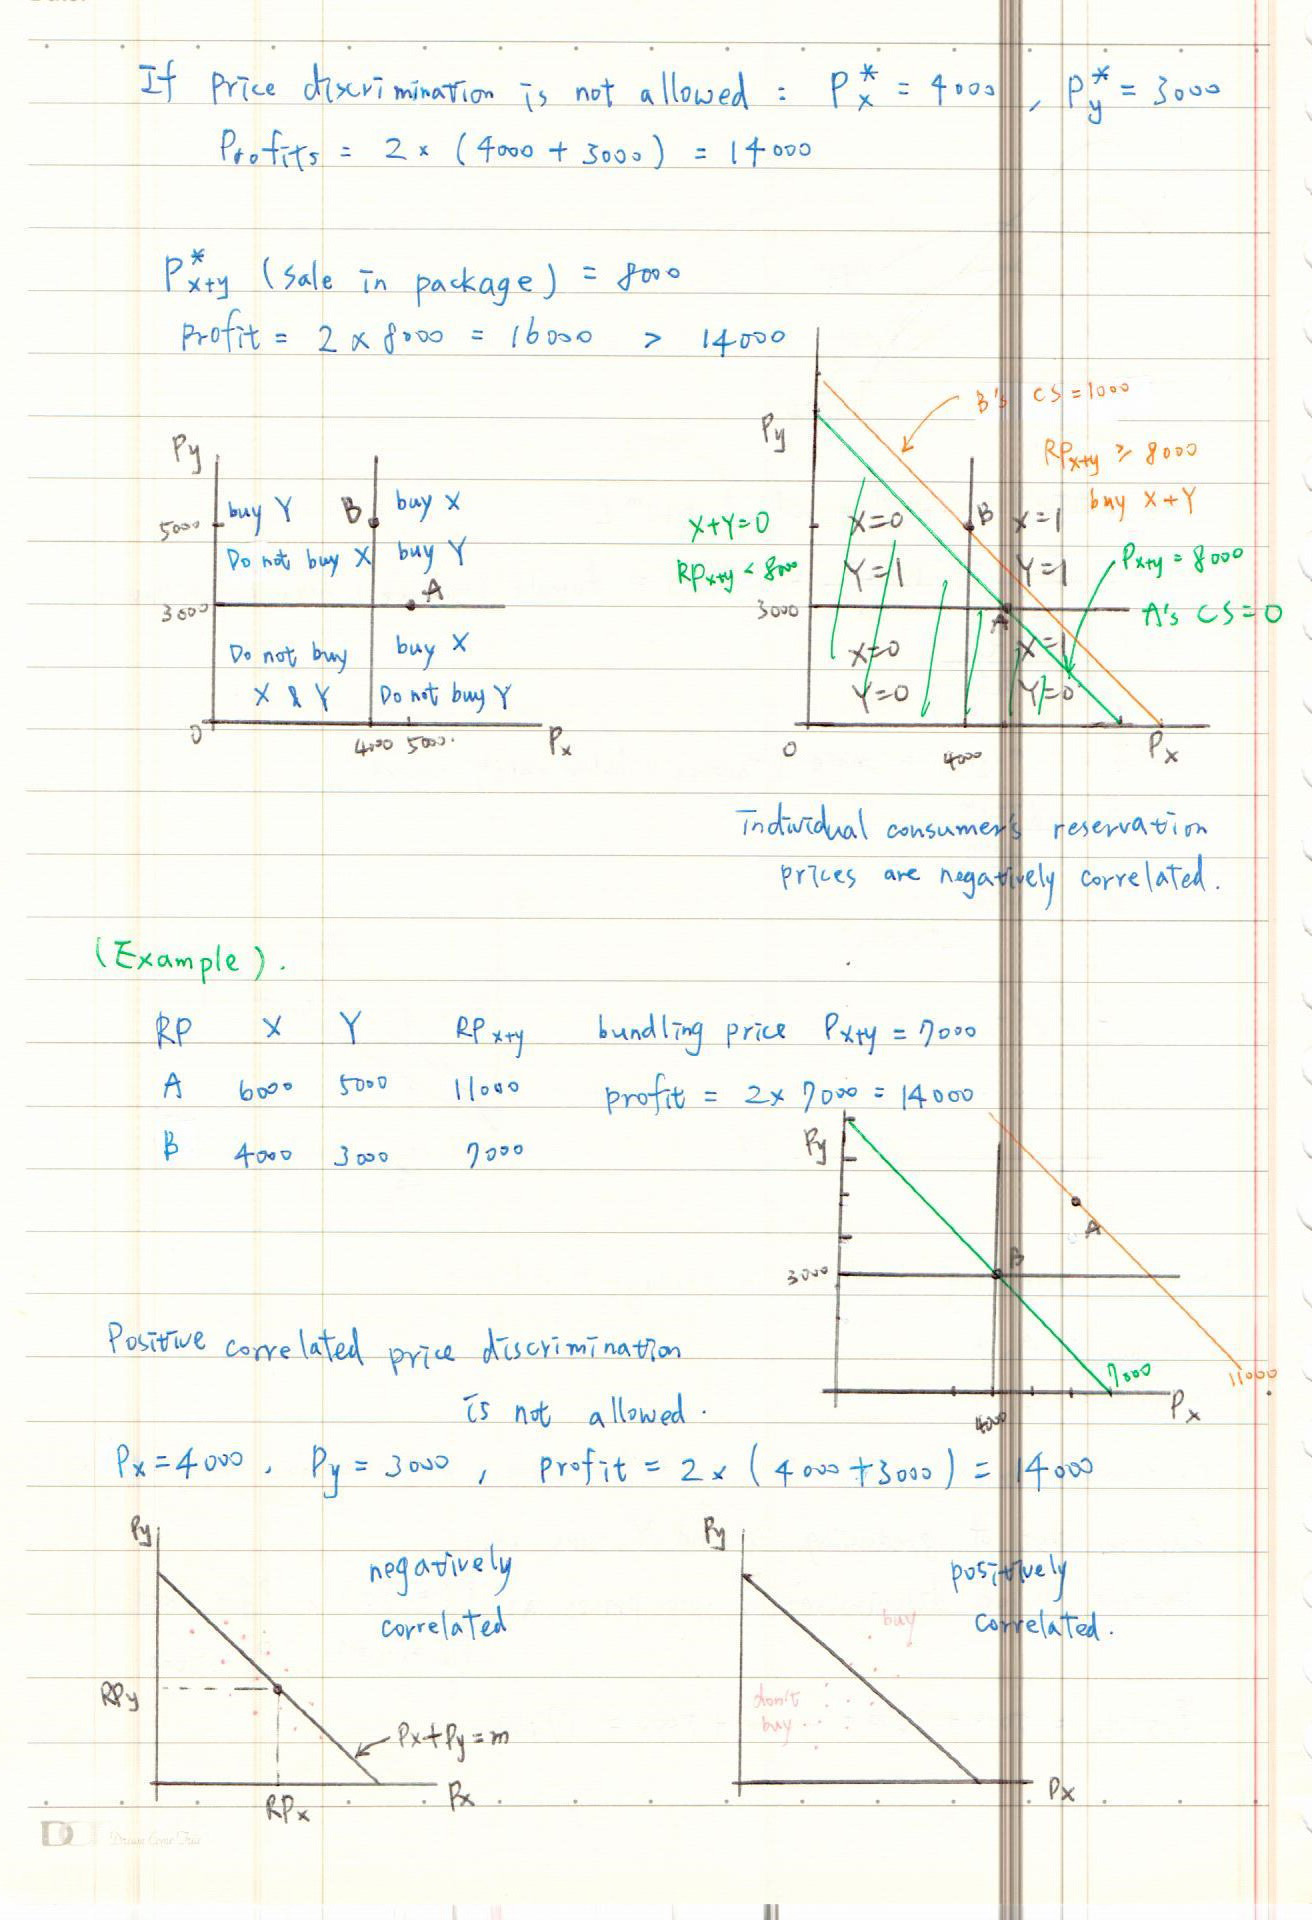 If price discrimination is not allowed : Px* = 4000 , Py* = 3000
Profits = 2 x (4000 + 3000) = 14000
P*x+y (sale in package) = 8000
profit = 2 x 8000 = 16000 > 14000
Py
5000
3000
0
4000 5000.
Px
buy Y
Do not buy X
B
buy X
buy Y
A
Do not buy
X & Y
buy X
Do not buy Y
Py
B's CS = 1000
RPx+y ≥ 8000
buy X+Y
X+Y=0
RPx+y < 8000
X=0
Y=1
B
X=1
Y=1
Px+y = 8000
A's CS = 0
3000
A
X=0
Y=0
X=1
Y=0
0
4000
Px
Individual consumer's reservation
prices are negatively correlated.
(Example).
RP X Y RPx+y bundling price Px+y = 7000
A 6000 5000 11000 profit = 2 x 7000 = 14000
B 4000 3000 7000
Py
A
B
3000
7000
11000
4000
Px
Positive correlated price discrimination
is not allowed.
Px = 4000 , Py = 3000 , profit = 2 x (4000 + 3000) = 14000
Py
negatively
correlated
RPy
Px + Py = m
RPx
Px
Py
positively
correlated.
buy
don't
buy
Px
D
Dream Come True